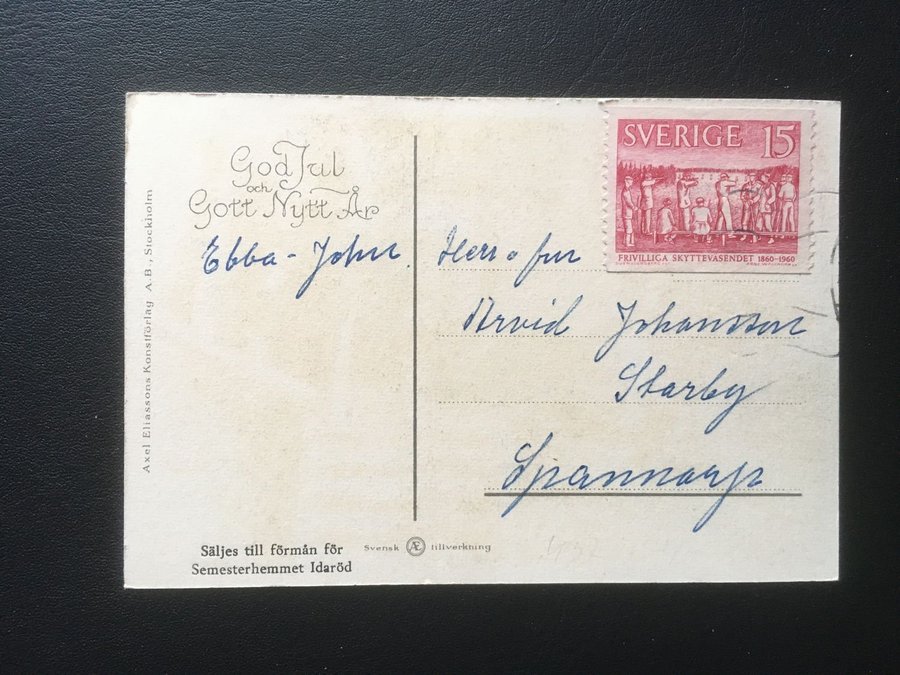 God Jul
och
Gott Nytt År
Ebba - John.
Axel Eliassons Konstförlag A.B., Stockholm
Säljes till förmån för
Semesterhemmet Idaröd
Svensk Æ tillverkning
SVERIGE 15
FRIVILLIGA SKYTTEVÄSENDET 1860-1960
Herr o fru
Arvid Johansson
Starby
Spannarp